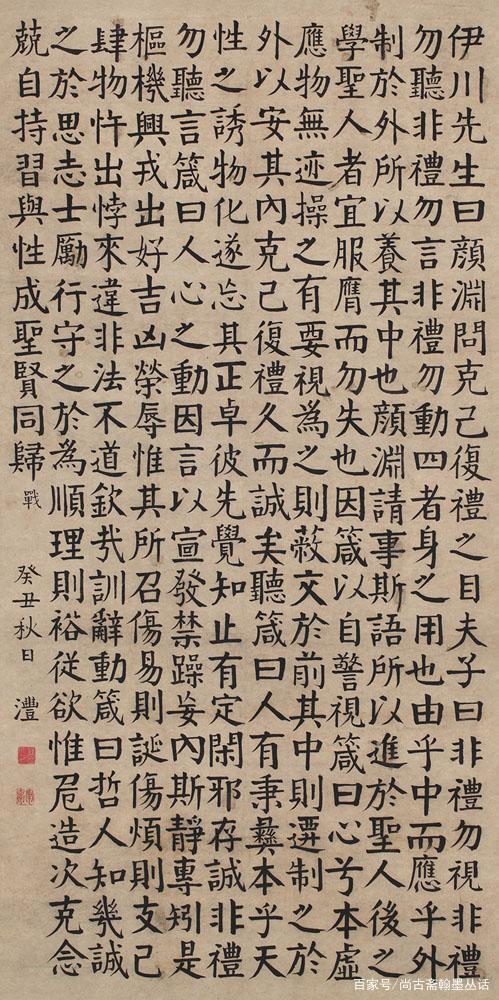 伊川先生曰顏淵問克己復禮之目夫子曰非禮勿視非禮
勿聽非禮勿言非禮勿動四者身之用也由乎中而應乎外
制於外所以養其中也顏淵請事斯語所以進於聖人後之
學聖人者宜服膺而勿失也因箴以自警視箴曰心兮本虛
應物無迹操之有要視為之則蔽交於前其中則遷制之於
外以安其內克己復禮久而誠矣聽箴曰人有秉彝本乎天
性之誘物化遂忘其正卓彼先覺知止有定閑邪存誠非禮
勿聽言箴曰人心之動因言以宣發禁躁妄內斯靜專矧是
樞機興戎出好吉凶榮辱惟其所召傷易則誕傷煩則支己
肆物忤出悖來違非法不道欽哉訓辭動箴曰哲人知幾誠
之於思志士勵行守之於為順理則裕從欲惟危造次克念
兢自持習與性成聖賢同歸 戰 癸丑秋日 澧
百家号/尚古斋翰墨丛话